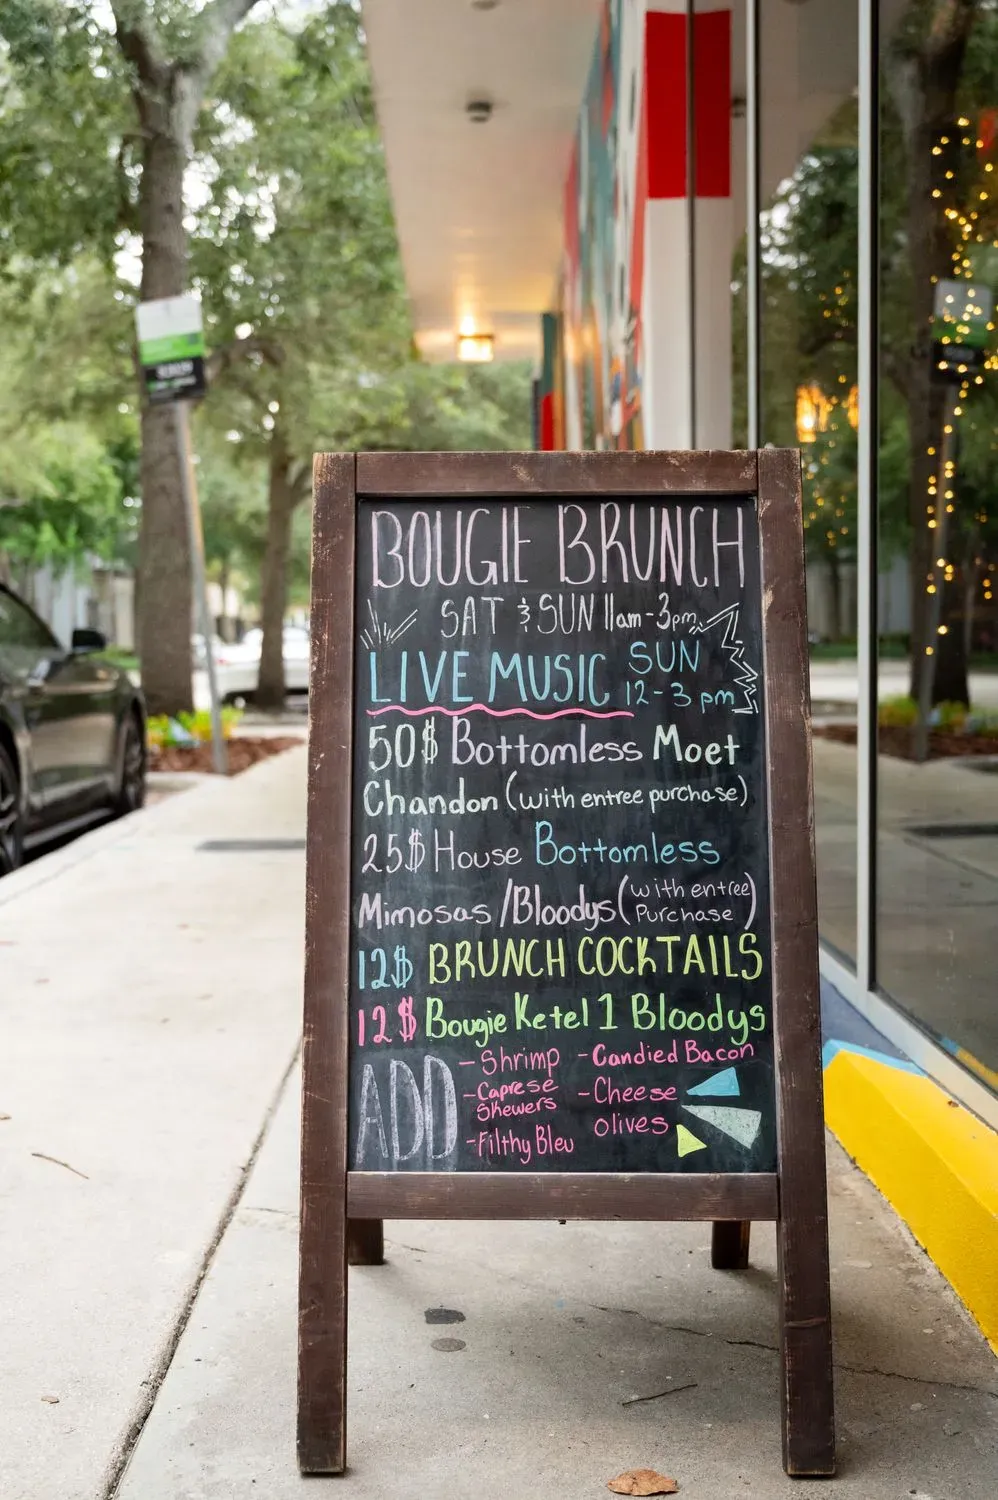 BOUGIE BRUNCH
SAT & SUN 11am-3pm
LIVE MUSIC SUN
12-3 pm
50$ Bottomless Moet
Chandon (with entree purchase)
25$ House Bottomless
Mimosas /Bloodys (with entree
Purchase)
12$ BRUNCH COCKTAILS
12$ Bougie Ketel 1 Bloodys
ADD
-Shrimp
-Caprese
Skewers
-Filthy Bleu
-Candied Bacon
-Cheese
olives